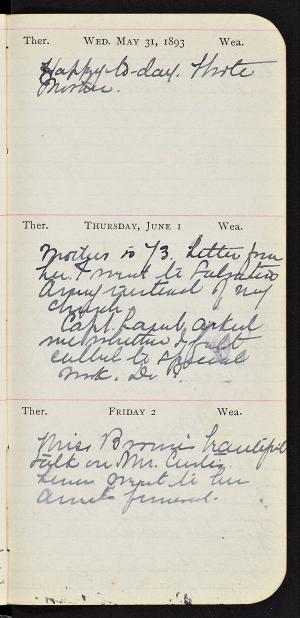 Ther. WED. MAY 31, 1893 Wea.
Happy to-day. Wrote
Mother.
Ther. THURSDAY, JUNE 1 Wea.
Mother is 73. Letter from
her. I went to Salvation
Army instead of my
church.
Capt. asked
me whether I felt
called to special
work. Do I?
Ther. FRIDAY 2 Wea.
Miss Brown's beautiful
talk on Mr. Curtis.
went to her
aunt's funeral.